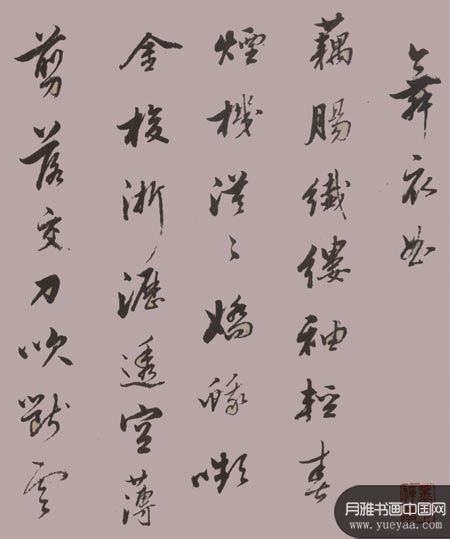 舞衣曲
藕腸纖縷袖輕春
煙機漠〻嬌蛾嚬
金梭淅瀝透空薄
剪落交刀吹斷雲
月雅书画中国网
www.yueyaa.com